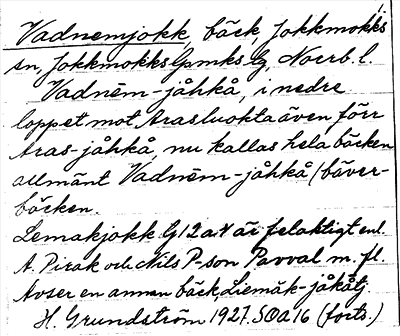 Vadnemjokk, bäck, Jokkmokks
sn, Jokkmokks lpmks. Norrb. l.
Vadnēm-jåhkå, i nedre
loppet mot Arasluokta även förr
Aras-jåhkå, nu kallas hela bäcken
allmänt Vadnēm-jåhkå (bäver-
bäcken.
Lemakjokk G 12 a 4 är felaktigt enl.
A. Pirak och Nils P-son Pavval m. fl.
Avser en annan bäck, Liemāk-jåkåtj.
H. Grundström 1927. SOa 16 (forts.)